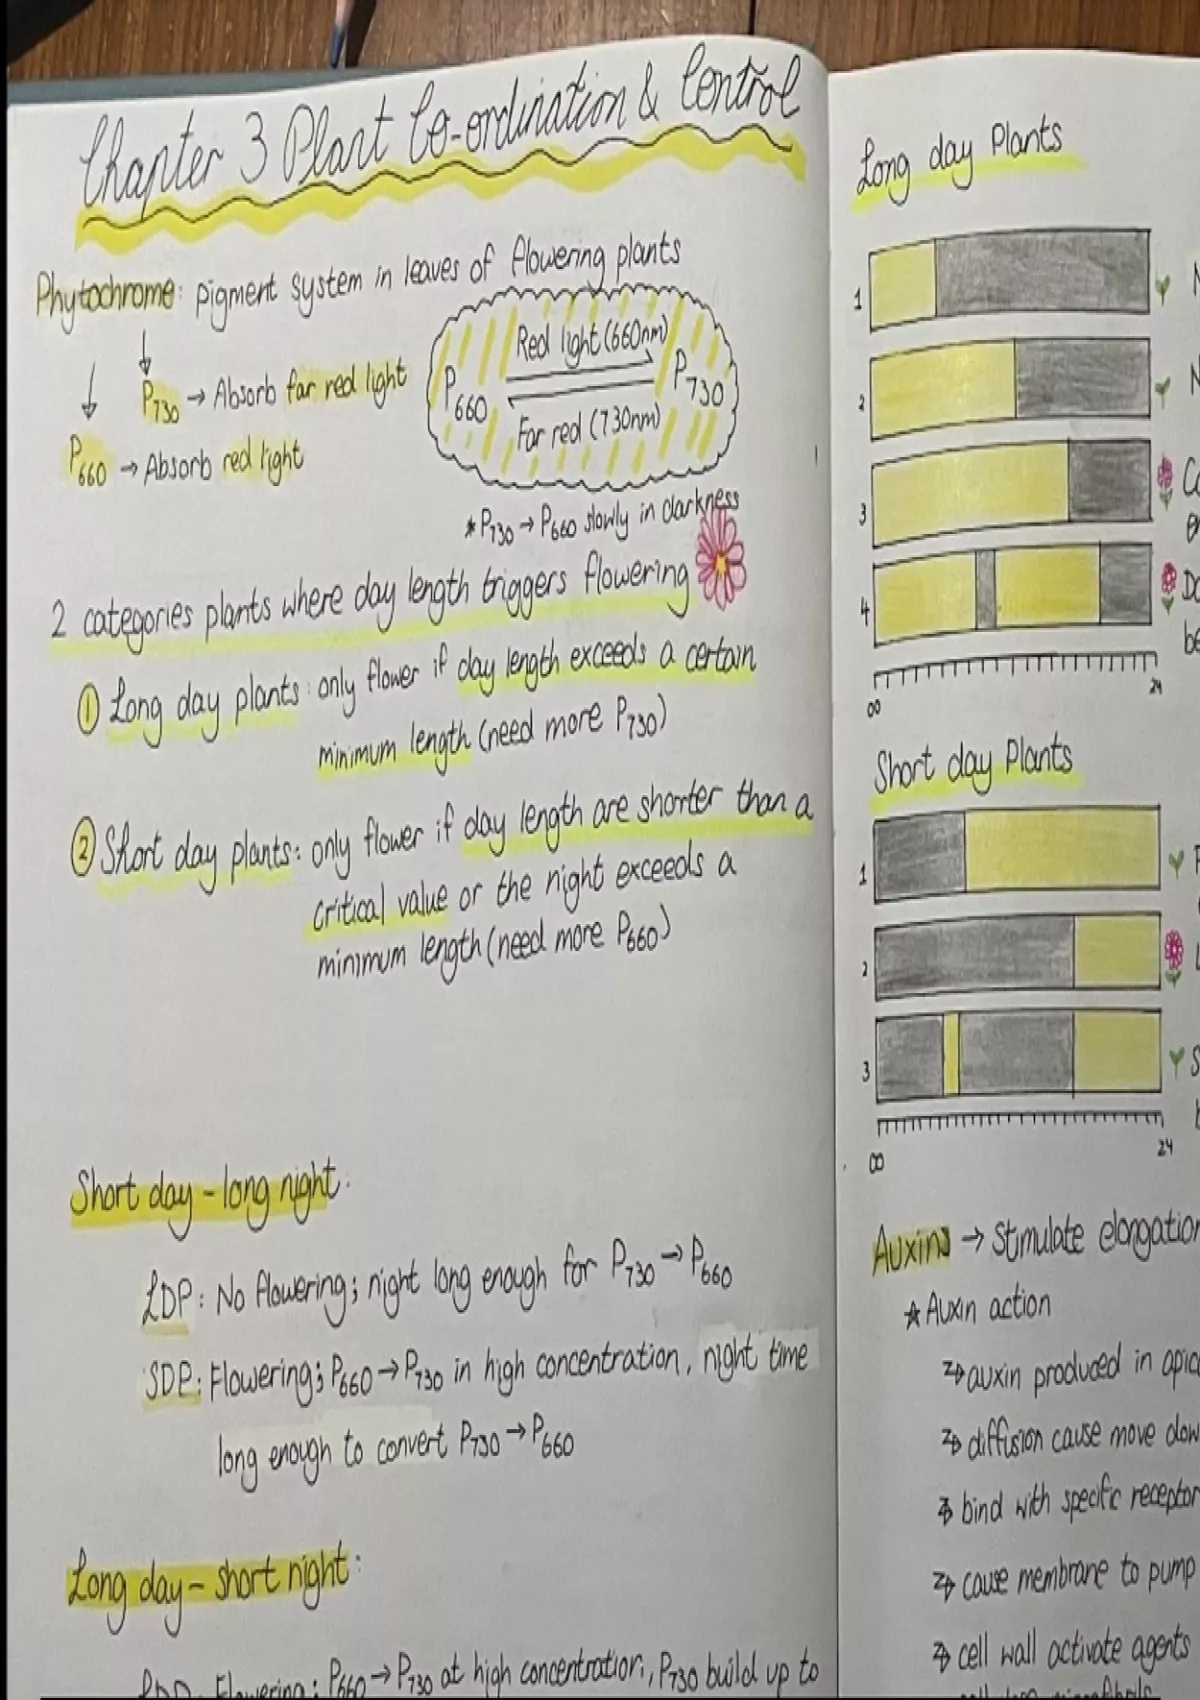 Chapter 3 Plant Co-ordination & Control
Phytochrome: pigment system in leaves of flowering plants
P730 → Absorb far red light
P660 → Absorb red light
Red light (660nm)
P660
P730
Far red (730nm)
*P730 → P660 slowly in darkness
2 categories plants where day length triggers flowering
① Long day plants: only flower if day length exceeds a certain
minimum length (need more P730)
② Short day plants: only flower if day length are shorter than a
critical value or the night exceeds a
minimum length (need more P660)
Short day - long night:
LDP: No flowering; night long enough for P730 → P660
SDP: Flowering; P660 → P730 in high concentration, night time
long enough to convert P730 → P660
Long day - short night:
Flowering; P660 → P730 at high concentration, P730 build up to
Long day Plants
1
2
3
4
00
24
Short day Plants
1
2
3
00
24
Auxins → Stimulate elongation
* Auxin action
auxin produced in
diffusion cause move
bind with specific receptor
cause membrane to pump
cell wall activate agents